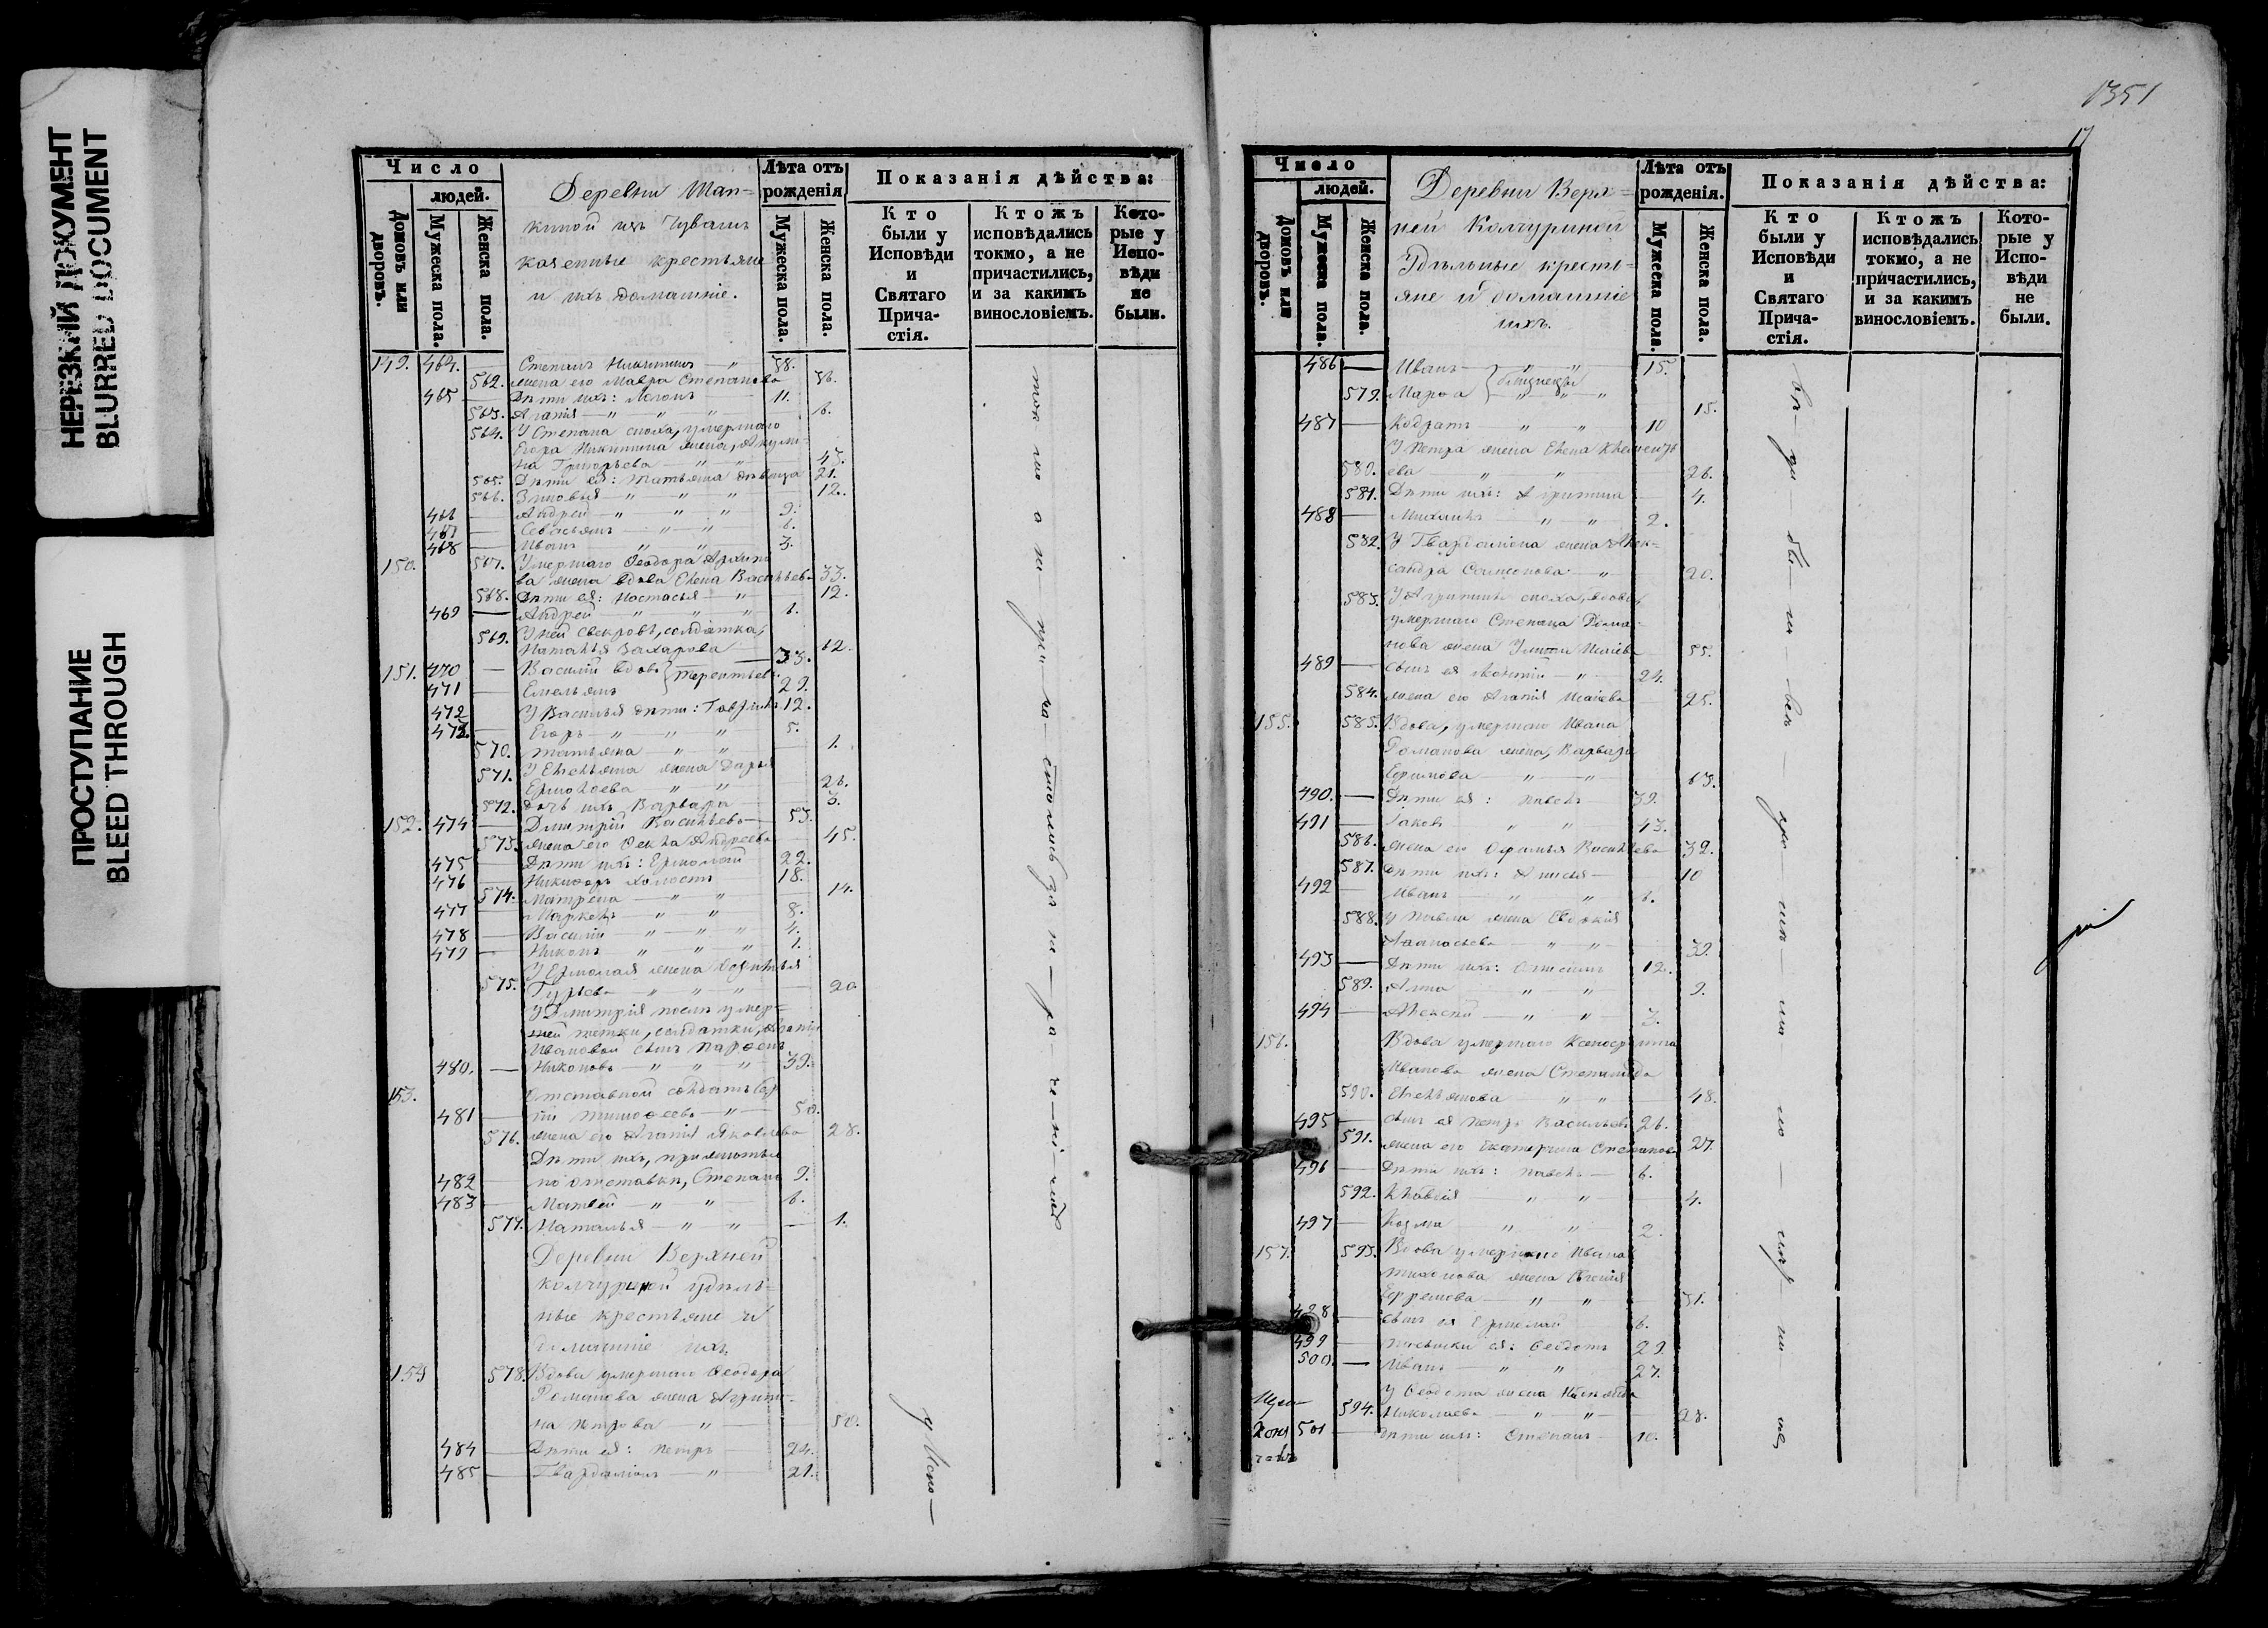 НЕРЕЗКИЙ ДОКУМЕНТ
BLURRED DOCUMENT
ПРОСТУПАНИЕ
BLEED THROUGH
Число
людей.
Домовъ или дворовъ.
Мужеска пола.
Женска пола.
Деревни Шап-
киной изъ Чувашъ
казенные крестьяне
и ихъ домашніе.
Лѣта отъ рожденія.
Мужеска пола.
Женска пола.
Показанія дѣйства:
Кто были у Исповѣди и Святаго Причастія.
Ктожъ исповѣдались токмо, а не причастились, и за какимъ винословіемъ.
Которые у Исповѣди не были.
149. 464. Степанъ Никитинъ 38.
562. жена его Мавра Степанова 36.
465 Дѣти ихъ: 11.
563. Агапія 6.
564. У Степана сноха, умершаго
Егора Никитина жена, Акули-
на Григорьева 43.
565. Дѣти ея: Татьяна дѣвица 21.
566. Зиновья 12.
466 Андрей 9.
467 Севастьянъ 6.
468 Иванъ 3.
150. 567. Умершаго Феодора Архипо-
ва жена вдова Елена Васильева 33.
568. Дѣти ея: Настасья 12.
469 Андрей 6.
569. У ней свекровь, солдатка,
Наталья Захарова 62.
151. 470 Василій вдовъ } Терентьевы 33.
471 Емельянъ 29.
472 У Василья дѣти: Гаврилъ 12.
473. Егоръ 5.
570. Татьяна 1.
571. У Емельяна жена Дарья
Ермолаева 26.
572. дочь ихъ Варвара 3.
152. 474 Димитрій Васильевъ 53.
573. жена его Фекла Андреева 45.
475 Дѣти ихъ: Ермолай 22.
476 Никифоръ холостъ 18.
574. Матрена 14.
477 Маркелъ 8.
478 Василій 4.
479 Никонъ 1.
У Ермолая жена
575. Гурьева 20
У Димитрія послѣ умер-
шей тетки, солдатки, Агапіи
Ивановой сынъ Парфенъ
480. Никоновъ 39.
153. Отставной солдатъ
481 Тимофеевъ 50.
576. жена его Агапія Яковлева 28.
Дѣти ихъ, прижитые
482 по отставкѣ, Степанъ 9.
483 Матвей 6.
577. Наталья 1.
Деревни Верхней
Колчуриной удѣль-
ные крестьяне и
домашніе ихъ
154 578. Вдова умершаго Феодора
Романова жена Агрипи-
на Петрова 50.
484 Дѣти ея: Петръ 24.
485 Гвардаліонъ 21.
у Испо-
1351
17
Число
людей.
Домовъ или дворовъ.
Мужеска пола.
Женска пола.
Деревни Верх-
ней Колчуриной
Удѣльные кресть-
яне и домашніе
ихъ.
Лѣта отъ рожденія.
Мужеска пола.
Женска пола.
Показанія дѣйства:
Кто были у Исповѣди и Святаго Причастія.
Ктожъ исповѣдались токмо, а не причастились, и за какимъ винословіемъ.
Которые у Исповѣди не были.
486 Иванъ } близнецы 15.
579. Марфа 15.
487 Кодратъ 10
У Петра жена Елена Клементь
580. ева 26.
581. Дѣти ихъ: Агрипина 4.
488 Михаилъ 2.
582. У Гвардаліона жена Алек-
сандра Самсонова 20.
583. У Агрипины сноха, вдова
умершаго Степана Рома-
нова жена 55.
489 сынъ ея 24.
584. жена его Агапія Исаева 25.
155. 585. Вдова, умершаго Ивана
Романова жена, Варвара
Ефимова 63.
490. Дѣти ея: Павелъ 39.
491 Іаковъ 43.
586. жена его Ефимья Васильева 32.
587. Дѣти ихъ: Анисья 10
492 Иванъ 6.
588. у Павла жена Евдокія
Афанасьева 39.
493 Дѣти ихъ: 12.
589. Анна 9.
494 Алексій 3.
156. Вдова умершаго Ксенофонта
Иванова жена Степанида
590. Емельянова 48.
495 сынъ ея Петръ Васильевъ 26.
591. жена его Екатерина Степанова 27.
496 Дѣти ихъ: Павелъ 6.
592. Клавдія 4.
497 Козма 2.
157. 593. Вдова умершаго Ивана
Тихонова жена Евгенія
Ефремова 31.
498 сынъ ея Ермолай 6.
499 пасынки ея: Феодотъ 29.
500. Иванъ 27.
У Феодота жена
594. Николаева 28.
501 Дѣти ихъ: Степанъ 10.